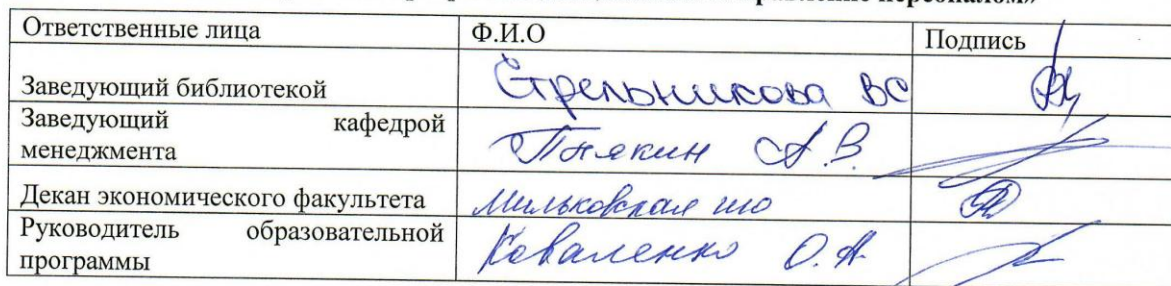 персоналом»
Ответственные лица Ф.И.О Подпись
Заведующий библиотекой Стрельникова ВС
Заведующий кафедрой
менеджмента А.В.
Декан экономического факультета Мильковская
Руководитель образовательной
программы Коваленко О.А.